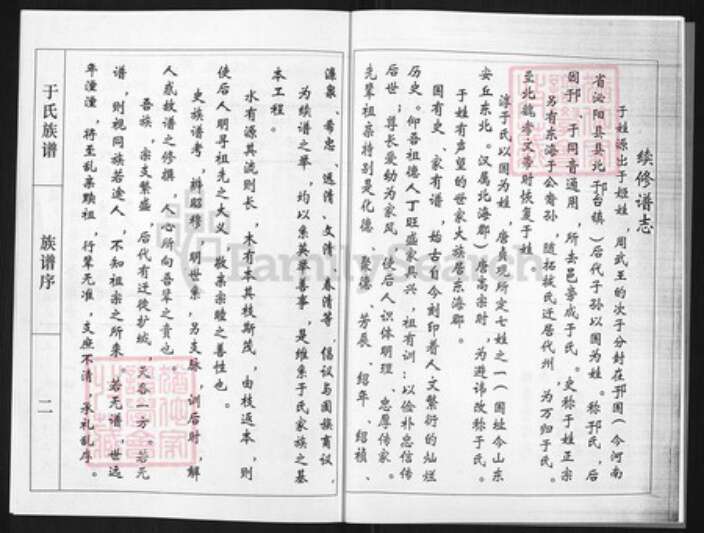 续修谱志
于姓源出于姬姓，周武王的次子分封在邘国（今河南
省沁阳县县北邘台镇）后代子孙以国为姓。称邘氏，后
因邘、于同音通用，所去邑旁成于氏。史称于姓正宗
另有东海于公裔孙，随拓拔氏迁居代州，为万归于氏。
至北魏孝文帝时恢复于姓
淳于氏以国为姓，唐贞观所定七姓之一（国址今山东
安丘东北。汉属北海郡）唐高宗时，为避讳改称于氏。
于姓有声望的世家大族居东海郡。
国有史、家有谱，始古自今刻印着人文繁衍的灿烂
历史。仰吾祖德人丁旺盛家具兴，祖有训：以俭朴忠信传
后世；尊长爱幼为家风使后人识体明理、忠厚传家。
先辈祖亲特别是化德、聚德、芳晨、绍年、绍祯、
濂泉、希忠、远清、文清、春清等，倡议与国族商议，
为续谱之举，均以集英举善事，是维系于氏家族之基
本工程。
水有源其流则长，木有本其枝斯茂，由枝返本，则
使后人明寻祖先之大义，敦亲宗睦之善性也。
史族谱考，辨昭穆、明世系，另支脉，训后时，解
人惑故谱之修撰，人心所向吾辈之责也。
吾族，宗支繁盛，后代有迁徙扩域，天各一方。若无
谱，则视同族若途人，不知祖宗之所来。若无谱，世远
年湮，将至乱宗黩祖，行辈无准，支庶不清，承礼乱序。
于氏族谱
族谱序
二
FamilySearch